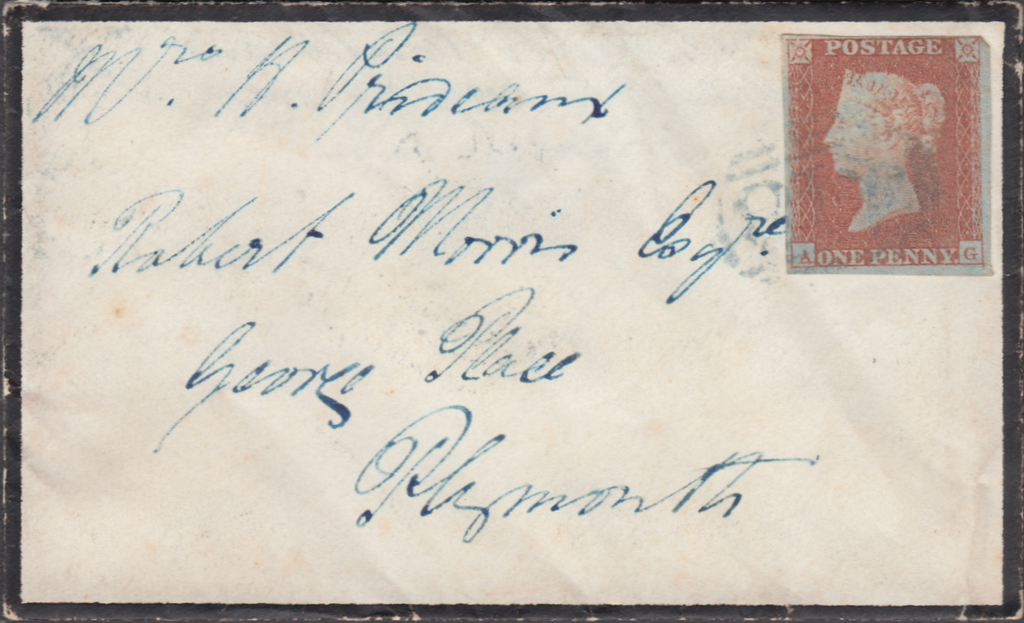 Mrs. H. Prideaux
POSTAGE
Robert Morris Esqre.
A ONE PENNY. G
George Place
Plymouth